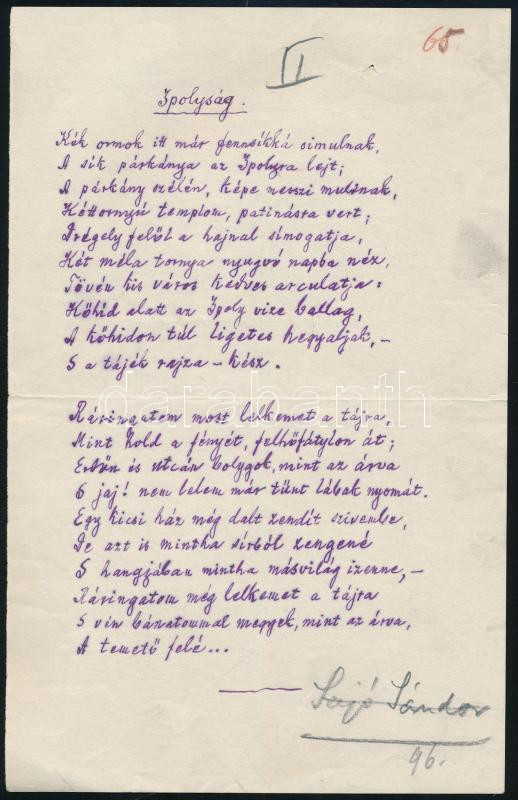 II
65.
Ipolyság.
Kék ormok itt már fennsíkká simulnak,
A sík párkánya az Ipolyra lejt;
A párkány szélén, képe messzi multnak,
Kéttornyú templom, patinásra vert;
Drégely felől a hajnal simogatja,
Két méla tornya nyugvó napba néz,
Tövén kis város kedves arculatja:
Kőhíd alatt az Ipoly vize ballag,
A kőhídon túl ligetes hegyaljak, –
S a tájék rajza – kész.
darabanth
Ráringatom most lelkemet a tájra,
Mint hold a fényét, felhőfátylon át;
Erdőn és utcán bolygok, mint az árva
S jaj! nem lelem már tűnt lábak nyomát.
Egy kicsi ház még dalt zendít szivembe,
De azt is mintha sírból zengené
S hangjában mintha másvilág izenne, –
Ráringatom még lelkemet a tájra
S vén bánatommal megyek, mint az árva,
A temető felé...
Sajó Sándor
96.